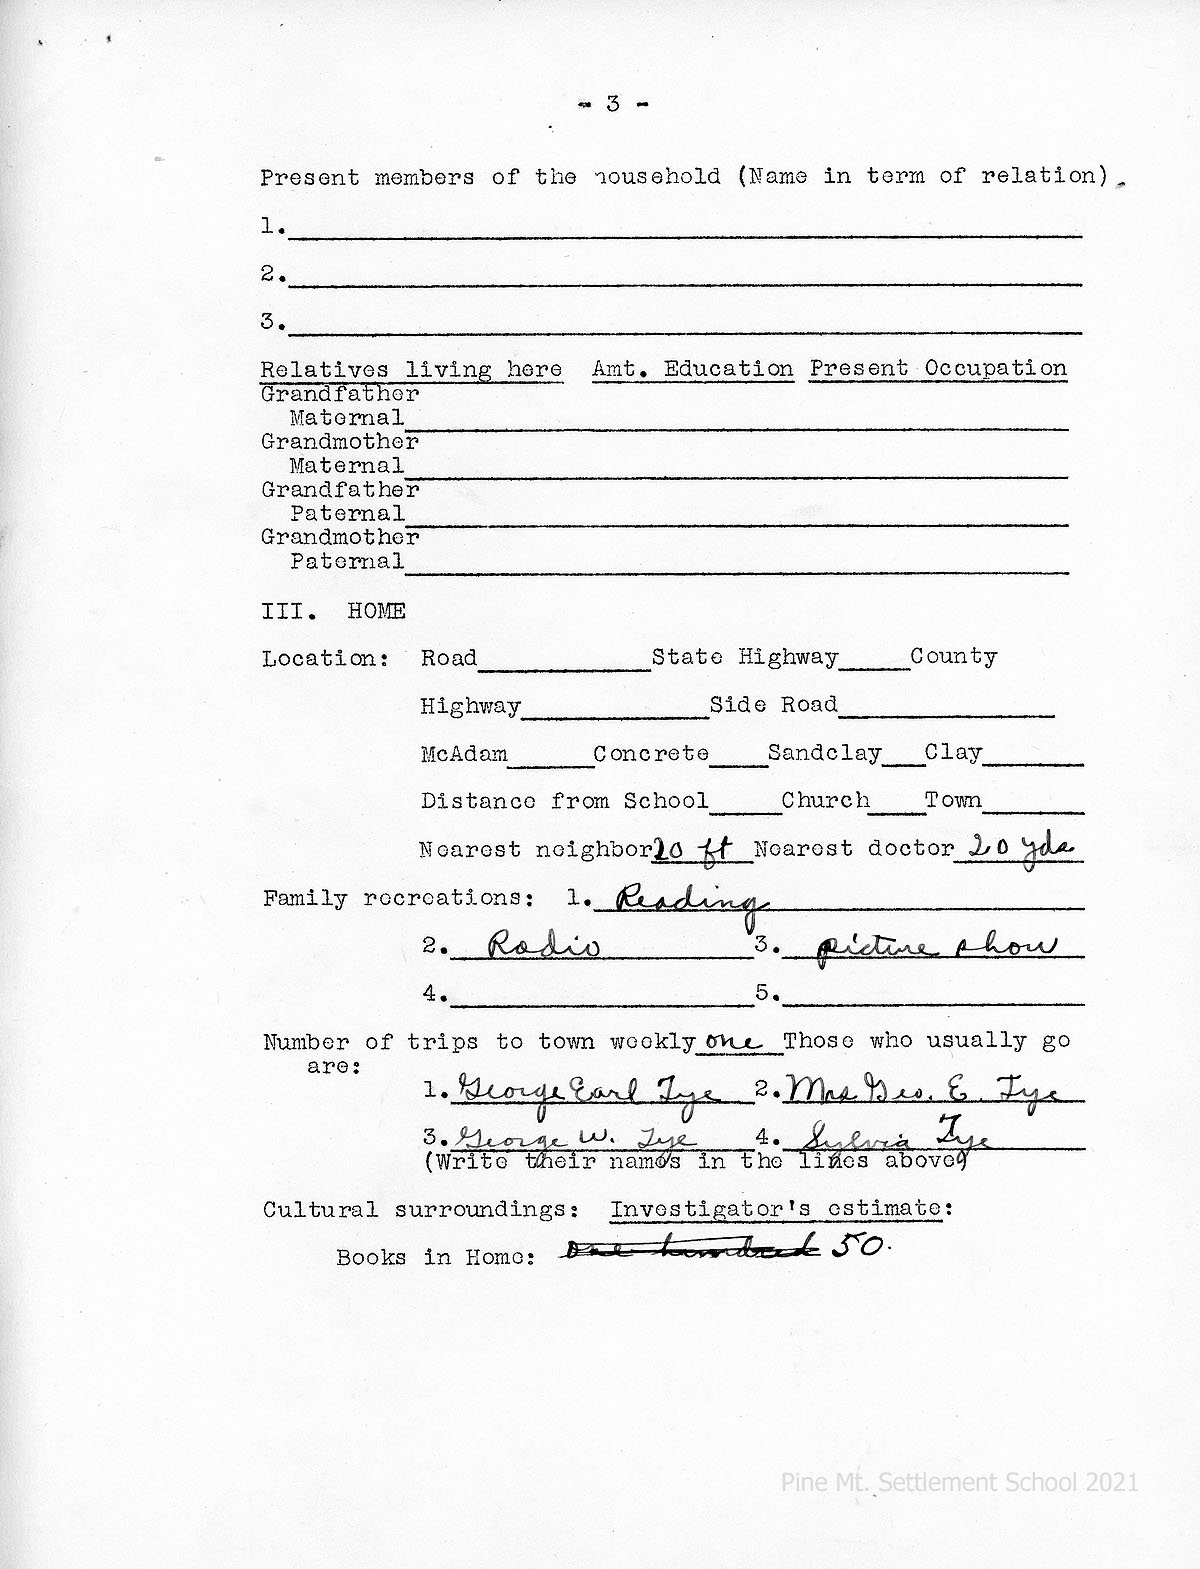 - 3 -
Present members of the household (Name in term of relation).
1.
2.
3.
Relatives living here Amt. Education Present Occupation
Grandfather
Maternal
Grandmother
Maternal
Grandfather
Paternal
Grandmother
Paternal
III. HOME
Location: Road State Highway County
Highway Side Road
McAdam Concrete Sandclay Clay
Distance from School Church Town
Nearest neighbor 20 ft Nearest doctor 20 yds
Family recreations: 1. Reading
2. Radio 3. picture show
4. 5.
Number of trips to town weekly one Those who usually go
are:
1. George Earl Tye 2. Mrs Geo. E. Tye
3. George W. Tye 4. Sylvia Tye
(Write their names in the lines above)
Cultural surroundings: Investigator's estimate:
Books in Home: one hundred 50.
Pine Mt. Settlement School 2021